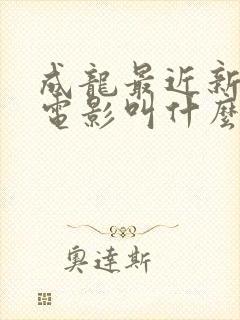 成龍最近新
電影叫什麼
奧達斯